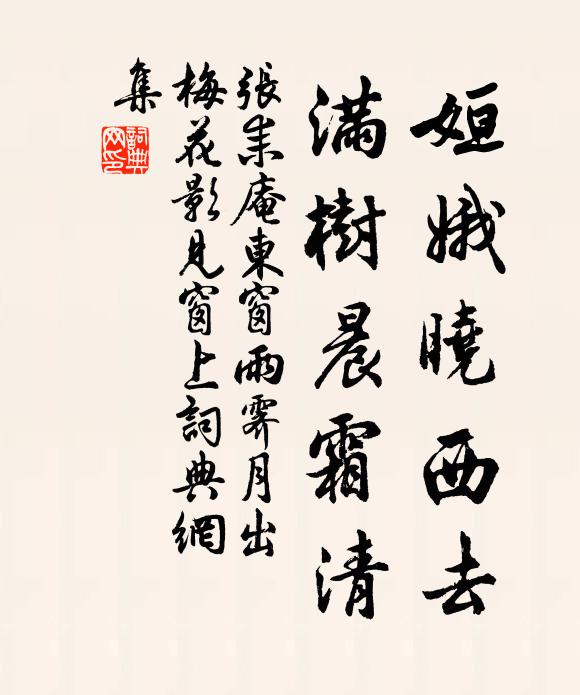 姮娥曉西去
滿樹晨霜清
張耒庵東窗雨霽月出
梅花影見窗上詞典網
集
詞典
网印